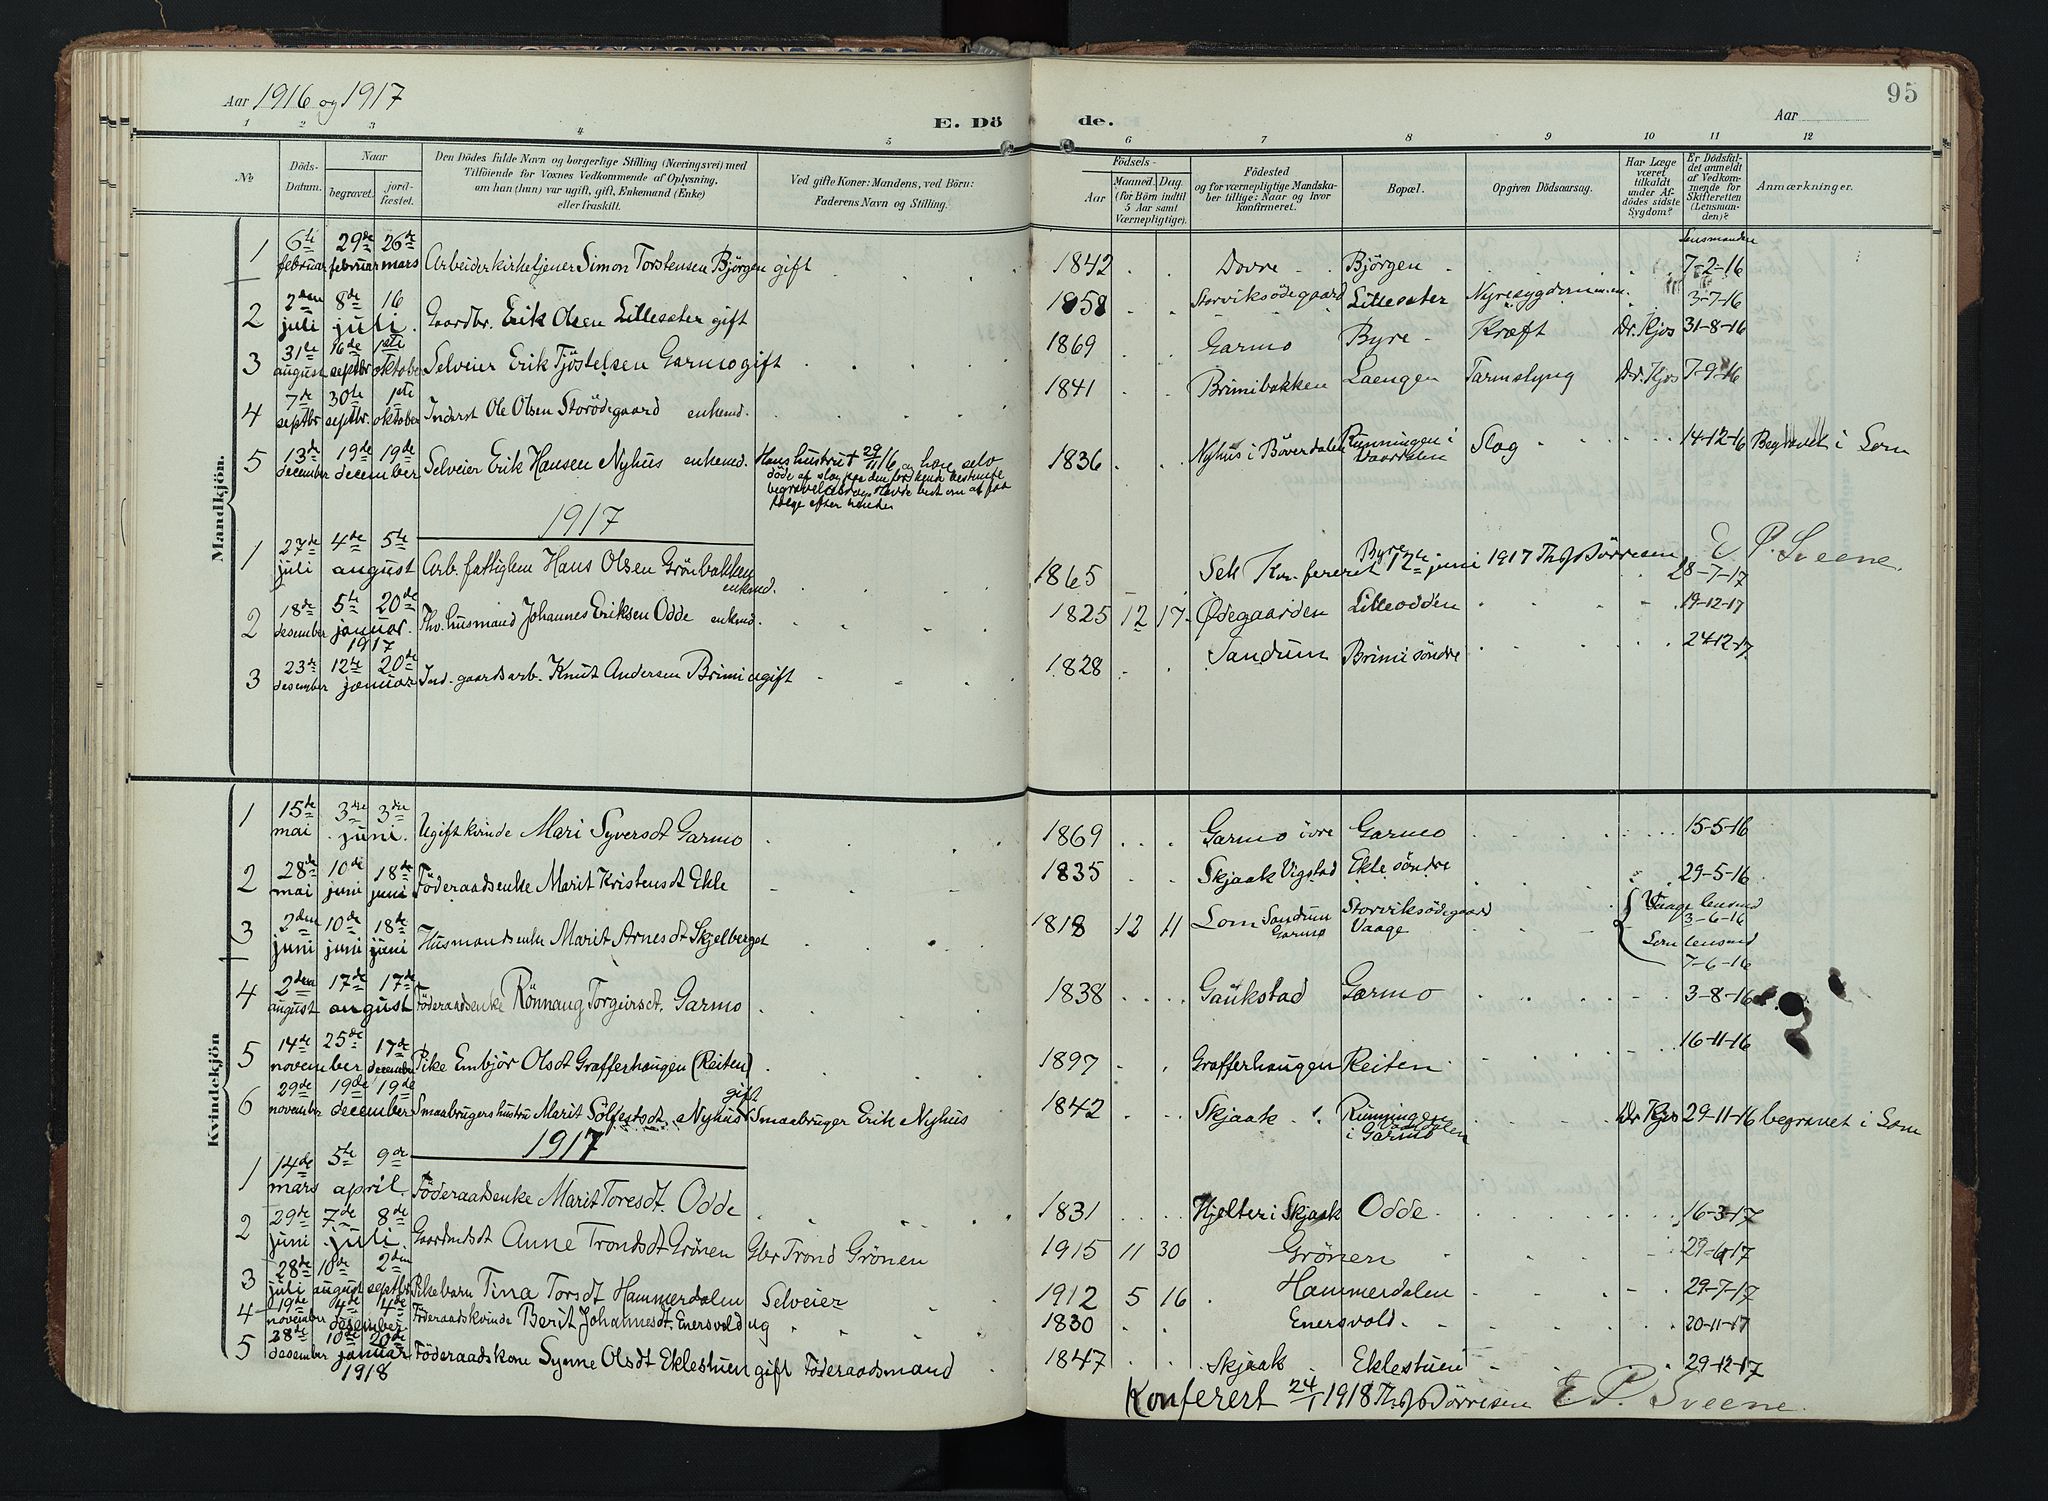 Aar 1916 og 1917
95
E. Dö de.
Aar
1 2 3 4 5 6 7 8 9 10 11 12
No
Döds-Datum.
Naar
begravet.
jord-fæstet.
Den Dödes fulde Navn og borgerlige Stilling (Næringsvei) med
Tilföiende for Voxnes Vedkommende af Oplysning,
om han (hun) var ugift, gift, Enkemand (Enke)
eller fraskilt.
Ved gifte Koner: Mandens, ved Börn:
Faderens Navn og Stilling.
Födsels-
Aar
Maaned. Dag.
(for Börn indtil
5 Aar samt
Værnepligtige).
Födested
og for værnepligtige Mandska-
ber tillige: Naar og hvor
konfirmeret.
Bopæl.
Opgiven Dödsaarsag.
Har Læge
været
tilkaldt
under Af-
dödes sidste
Sygdom?
Er Dödsfal-
det anmeldt
af Vedkom-
mende for
Skifteretten
(Lensman-
den)?
Anmærkninger.
Mandkjön.
Lensmanden
1 6te februar 29de februar 26de mars Arbeider kirketjener Simon Torstensen Björgen gift 1842 Dovre Björgen 7-2-16
2 2den juli 8de juli 16 Gaardbr. Erik Olsen Lillesæter gift 1858 Storviksödegaard Lillesæter Nyresygdommen 3-7-16
3 31te august 16de septbr 1ste oktober Selveier Erik Tjöstelsen Garmo gift 1869 Garmo Byre Kræft Dr. Kjos 31-8-16
4 7de septbr 30te septbr. 1ste oktober Inderst Ole Olsen Storödegaard enkemd. 1841 Brimibakken Laengen Tarmslyng Dr. Kjos 7-9-16
5 13de december 19de december 19de Selveier Erik Hansen Nyhus enkemd. Hans hustru † 29/11 16 og han selv
döde af slag paa den for hende bestemte
begravelsesdag
følge efter hende
1836 Nyhus i Böverdalen Runningen i Vaardalen Slag 14-12-16 Begravet i Lom
1917
1 27de juli 4de august 5te Arb. fattiglem Hans Olsen Grönbakken enkmd. 1865 Sel Byre 28-7-17
Konfereret 12te juni 1917 Th. Dörresen E P. Sveene.
2 18de desember 5te januar 1917 20de Fhv. husmand Johannes Eriksen Odde enkmd. 1825 12 17 Ødegaarden Lilleodden 19-12-17
3 23de desember 12te januar 20de Ind. gaardsarb. Knut Andersen Brimi ugift 1828 Sandum Brimi söndre 24-12-17
Kvindekjön
1 15de mai 3dje juni 3die Ugift kvinde Mari Syversdt Garmo 1869 Garmo övre Garmo 15-5-16
2 28de mai 10de juni 18de juni Föderaadsenke Marit Kristensdt Ekle 1835 Skjaak Vigstad Ekle söndre 29-5-16
3 2den juni 10de juni 18de juni Husmandsenke Marit Arnesdt Skjelberget 1818 12 11 Lom Sandum Garmo Storviksödegaard Vaage Vaage lensmd 3-6-16
Lom lensmd
7-6-16
4 2den august 17de august 17de Föderaadsenke Rönnaug Torgeirsdt. Garmo 1838 Gaukstad Garmo 3-8-16
5 14de november 25de 17de december Pike Embjör Olsdt Grafferhaugen (Reiten) 1897 Grafferhaugen Reiten 16-11-16
6 29de november 19de december 19de Smaabrugers hustru Marit Söljestsdt. Nyhus gift Smaabruger Erik Nyhus 1842 Skjaak Runningen Vaardalen i Garmo Dr Kjos 29-11-16 begravet i Lom
1917
1 14de mars 5te april. 9de Föderaadsenke Marit Toresdt. Odde 1831 Hjelter i Skjaak Odde 16-3-17
2 29de juni 7de juli 8de Gaardmdsdt Anne Trondsdt Grönen Gbr Trond Grönen 1915 11 30 Grönen 29-6-17
3 28de juli 10de august 2den septbr Pikebarn Tina Torsdt Hammerdalen Selveier 1912 5 16 Hammerdalen 29-7-17
4 19de november 4de desember 4de Föderaadskvinde Berit Johannesdt. Enersvold ug 1830 Enersvold 20-11-17
5 28de desember 10de januar 1918 20de Föderaadskone Synne Olsdt Eklestuen gift Föderaadsmand 1847 Skjaak Eklestuen 29-12-17
Konferert 24/1 1918 Th. Dörresen E P. Sveene.